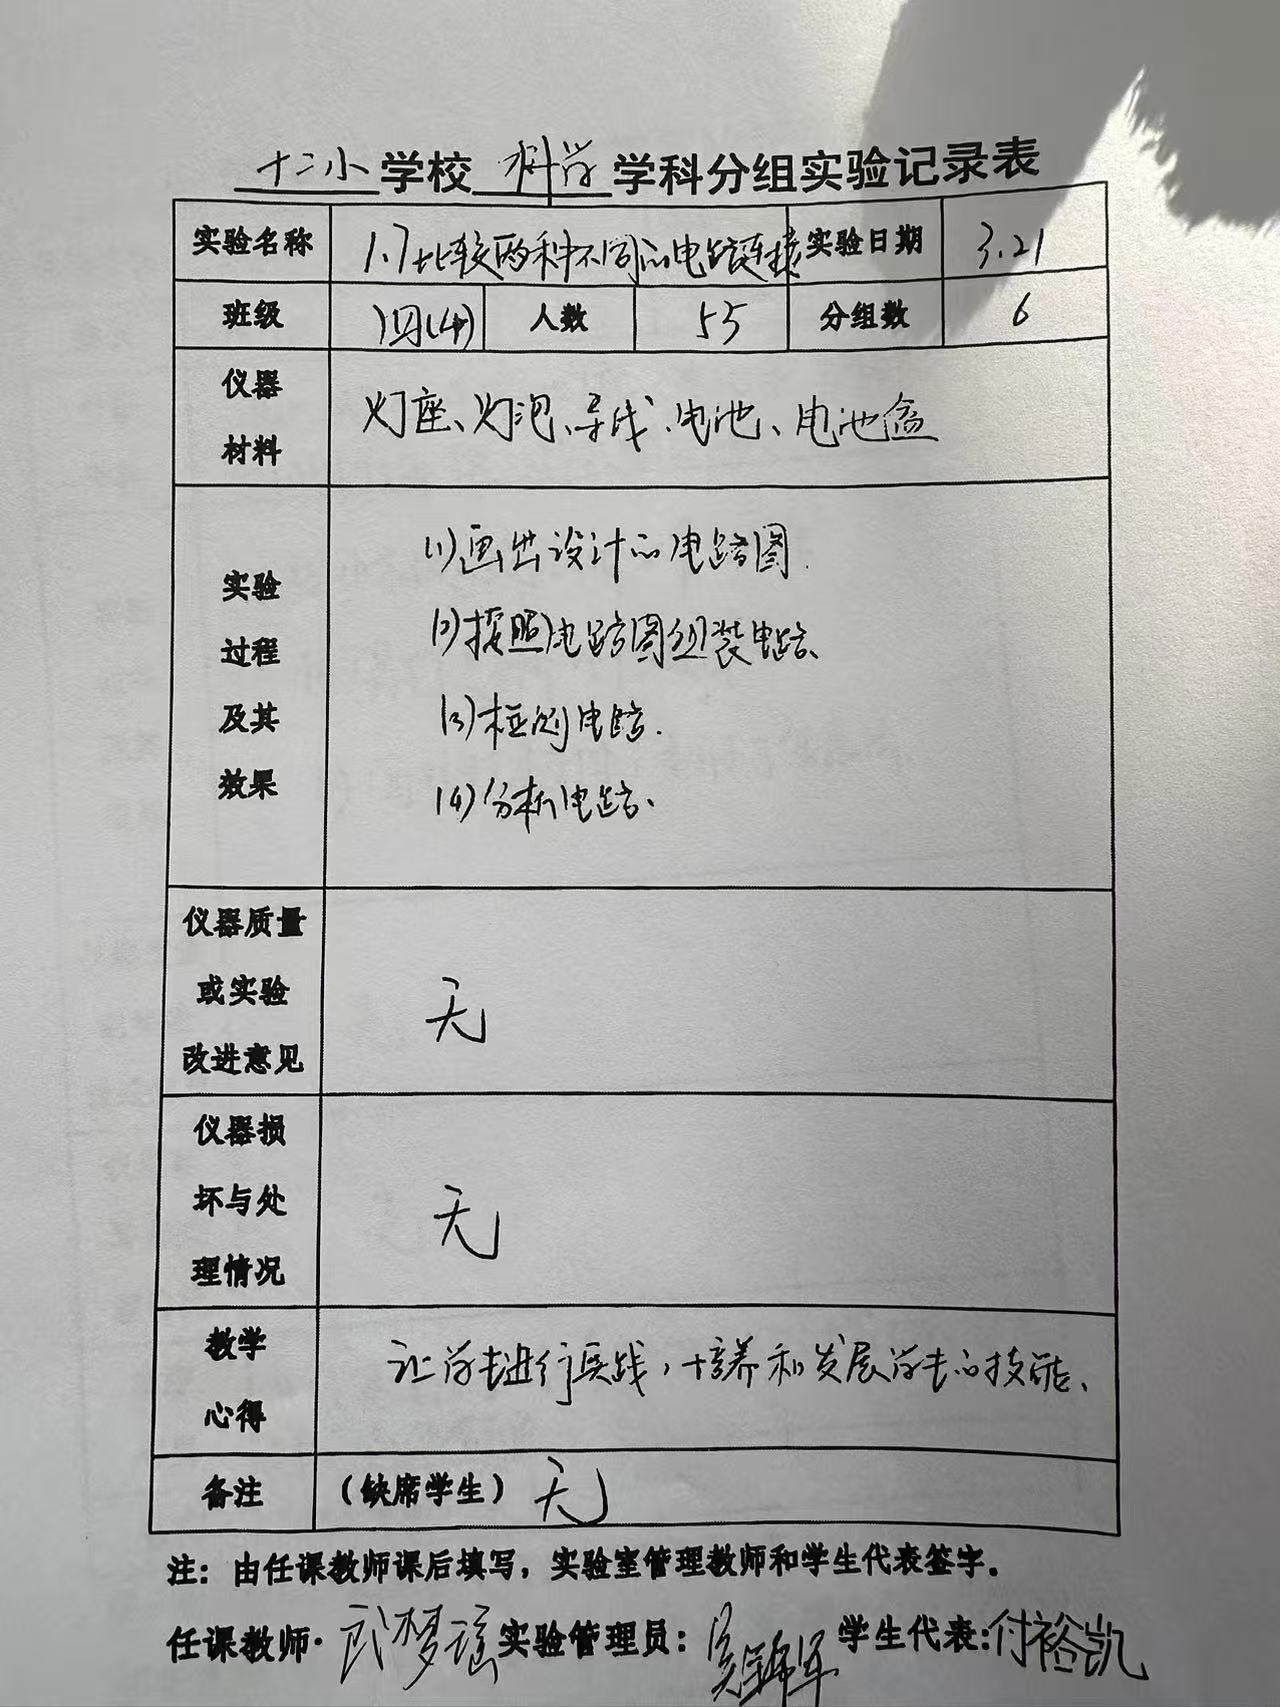 十二小学校 科学 学科分组实验记录表
实验名称 1.7比较两种不同的电路连接 实验日期 3.21
班级 四(4) 人数 55 分组数 6
仪器
材料
灯座、灯泡、导线、电池、电池盒
实验
过程
及其
效果
(1)画出设计的电路图.
(2)按照电路图组装电路、
(3)检测电路.
(4)分析电路、
仪器质量
或实验
改进意见
无
仪器损
坏与处
理情况
无
教学
心得
让学生进行实战,培养和发展学生的技能、
备注 (缺席学生) 无
注：由任课教师课后填写，实验室管理教师和学生代表签字。
任课教师: 梦瑶 实验管理员: 学生代表:付裕凯